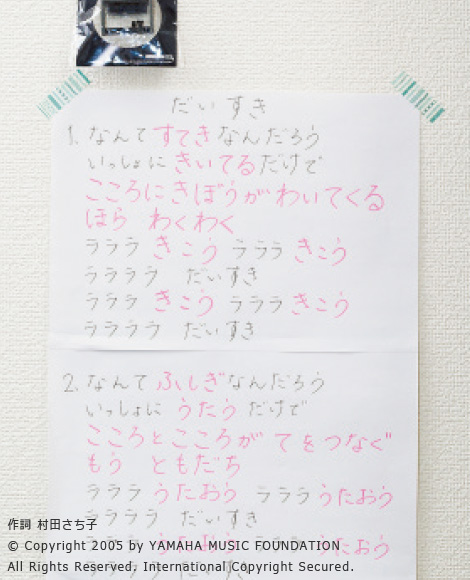 だいすき
1. なんて すてき なんだろう
いっしょに きいてる だけで
こころに きぼうが わいてくる
ほら わくわく
ラララ きこう ラララ きこう
ララララ だいすき
ラララ きこう ラララ きこう
ララララ だいすき
2. なんて ふしぎ なんだろう
いっしょに うたう だけで
こころと こころが てをつなぐ
もう ともだち
ラララ うたおう ラララ うたおう
ララララ だいすき
うたおう
作詞 村田さち子
© Copyright 2005 by YAMAHA MUSIC FOUNDATION
All Rights Reserved. International Copyright Secured.